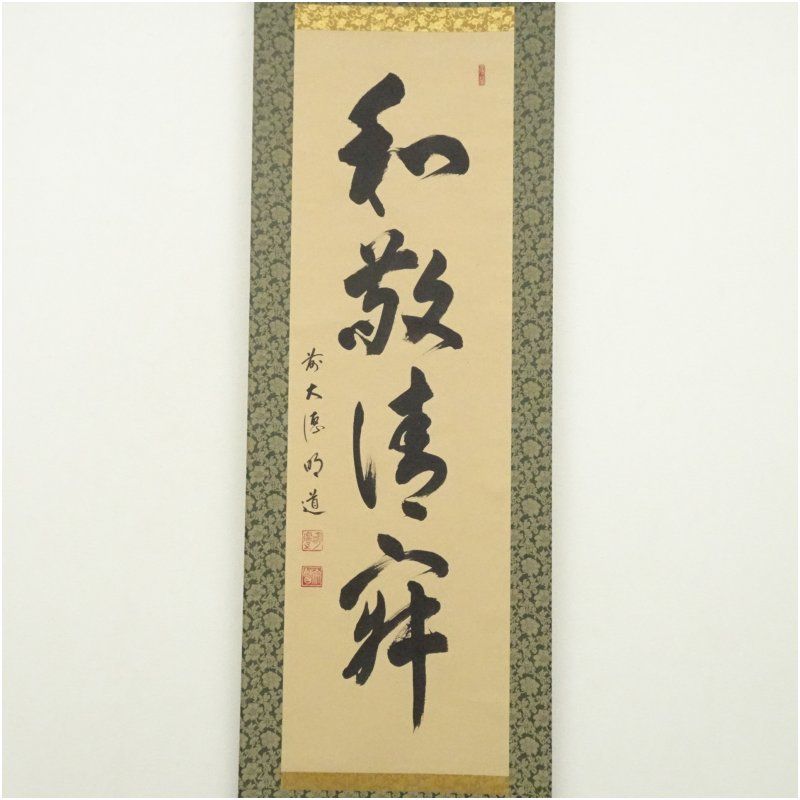 和敬清寂
前大徳明道